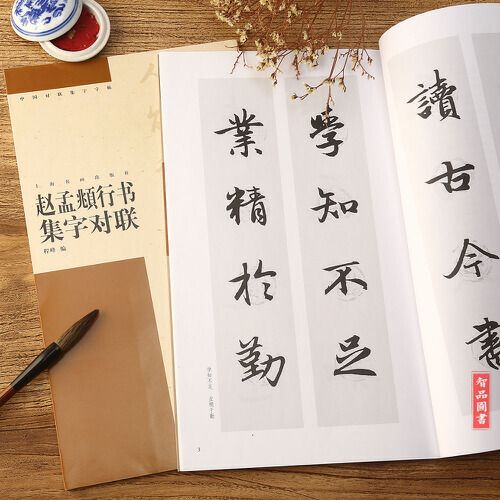 中国对联集字字帖
上海书画出版社
赵孟頫行书
集字对联
程峰 编
學知不足
業精於勤
學知不足 業精于勤
3
讀古今書
智品圖書